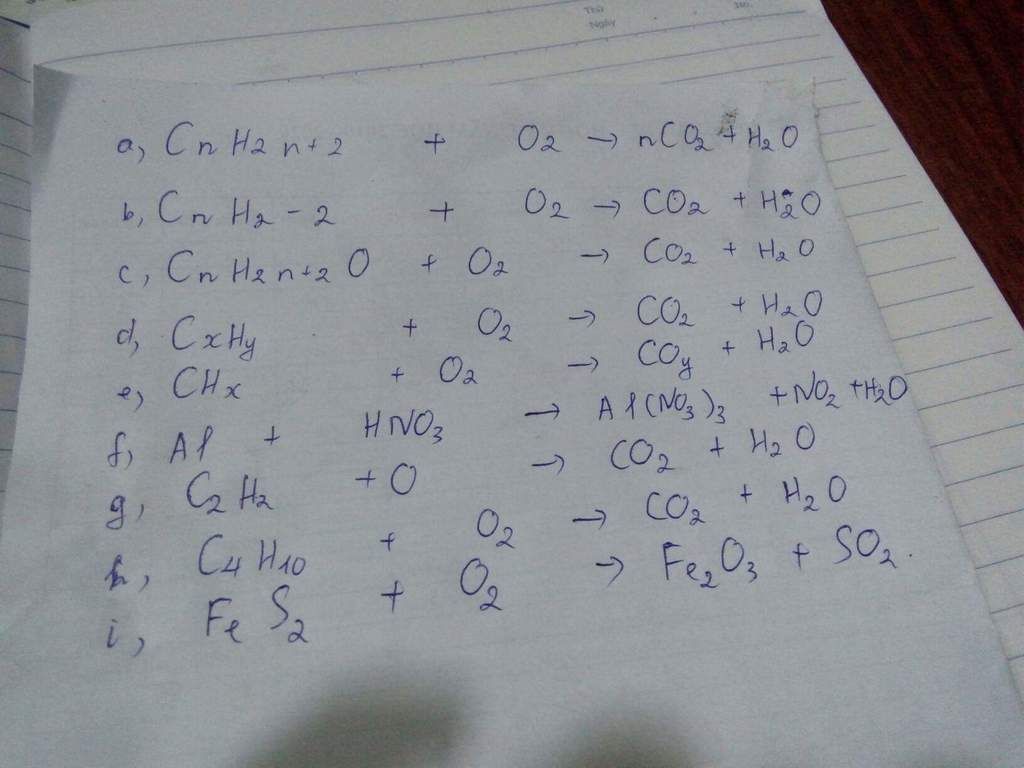 Thứ
Ngày
a, CnH2n+2 + O2 → nCO2 + H2O
b, CnH2-2 + O2 → CO2 + H2O
c, CnH2n+2O + O2 → CO2 + H2O
d, CxHy + O2 → CO2 + H2O
e, CHx + O2 → COy + H2O
f, Al + HNO3 → Al(NO3)3 + NO2 + H2O
g, C2H2 + O → CO2 + H2O
h, C4H10 + O2 → CO2 + H2O
i, FeS2 + O2 → Fe2O3 + SO2.